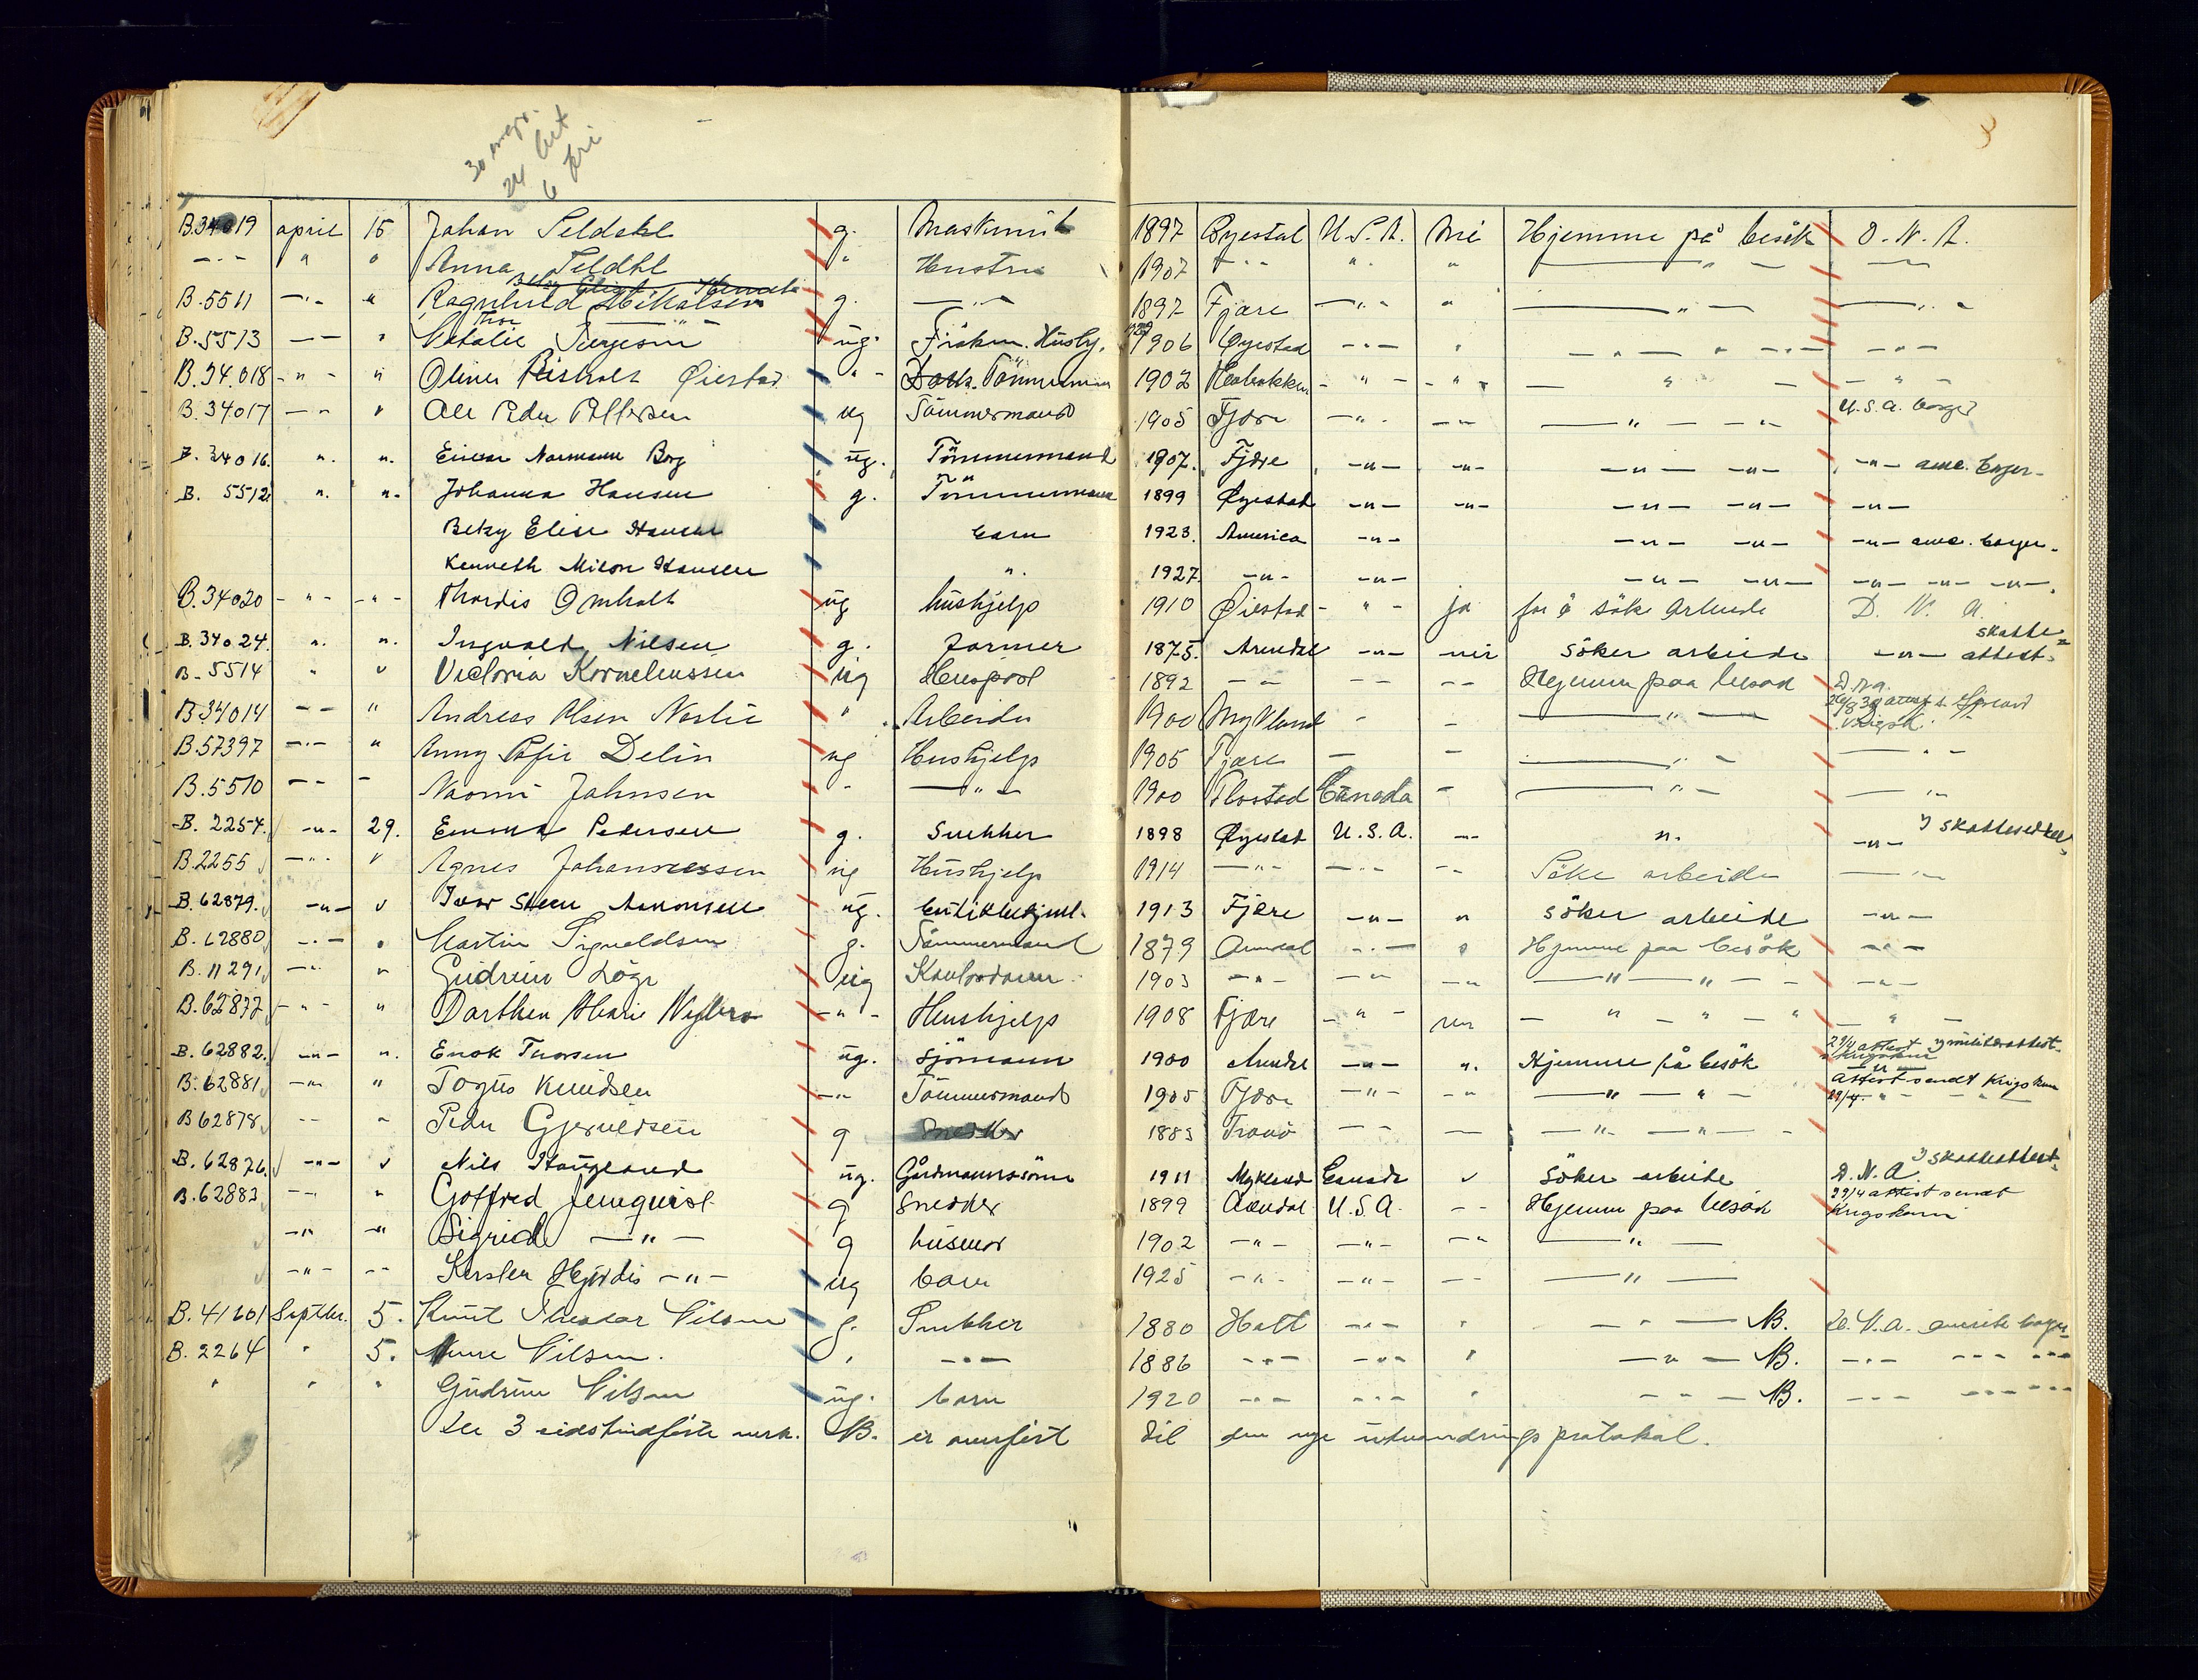 30 margr.
24
6
B.34019 april 15 Johan Seldahl g. Maskinist 1897 Øyestad U.S.A. Nei Hjemme på besøk D.N.A.
-"- " " Anna Seldhl " Hustru 1907 -"- " " -"- -"-
B.5511 -"- " Ragnhild Mikalsen g. -"- 1897 Fjære -"- " -"- -"-
B.5513 -"- " Natalie Thor Jürgesen ug. Frøkn. Husbg. 1906 Øyestad -"- " -"- -"-
B.34.018 -"- " Oliver Risholt Øiestad "- Dock. Tömmermann 1902 -"- -"- -"- -"-
B.34017 -"- " Ole Peder Pettersen ug Tömmermand 1905 Fjære -"- -"- -"- U.S.A. borger
B.34016. ". ". Einar Normann Borg ug. Tömmermand 1907. Fjære -"- -"- -"- -"- -"- ame. borger-
B. 5512 ". ". Johanna Hansen g. Tömmermann 1899 Øyestad -"- -"- -"- -"- -"-
Betzy Elise Hansen barn 1923. America -"- -"- -"- -"- ame. borger.
Kenneth Milon Hansen ". 1927. -"- -"- -"- -"- -"- -"- -"-.
B.34020 -"- -"- Thordis Omholt ug hushjelp 1910 Øiestad -"- ja for å sök Arbeide D. N. A.
B.34024. ". ". Ingvald Nilsen g. Farmer 1875. Arendal -"- nei söker arbeide -"- skatte attest.
B-5514 " " Victoria Korneliussen ug 1892 -"- -"- -"- Hjemme paa besøk D.n.a.
B34014 -"- " Andreas Olsen " Arbeider 1900 Mykland - - -"-
B.57397 -"- " Anny Sofie Delin ug Hushjelp 1905 Fjære - - -"- -"-
B.5510 -"- - Naomi Johnsen - -"- 1900 Flostad Canada - -"- -"-
B. 2254. -"- 29. Emma Pedersen g. Snekker 1898 Øyestad U.S.A. -"- ". -"- skatteseddel
B.2255 -"- " Agnes Johannessen ug Hushjelp 1914 -"- -"- -"- Söke arbeide -"-
B.62879. -"- " Ivar Steen Aanonsen ug. butikkbetjent. 1913 Fjære -"- " söker arbeide -"-
B. 62880 -"- " Martin Sigvaldsen g. Tömmermand 1879 Arendal -"- " Hjemme paa besök -"-
B. 11291 -"- " Gudrun Løge ug Kontordame. 1903 -"- -"- -"- -"- -"- -"-
B.62877 -"- " Dorthea Marie -"- Hushjelp 1908 Fjære -"- nei -"- -"- -"-
B.62882. -"- ". Enok Thorsen ug. Sjömann 1900 Arendal -"- ". Hjemme på besök 29/4 attest militærattest.
B.62881 -"- " Togus Knudsen -"- Tömmermand 1905 Fjære -"- -"- -"- -"- Attest sendt Krigskom 29/4. "
B62878 -"- " Peder Gjeruldsen g Snekker 1883 Tromö -"- - -"- -"-
B.62876 -"- " Nils Haugland ug. Gårdmannssønn 1911 Mykland Canada " Söker arbeide D.N.A. skatteattest.
B.62883. -"- " Gotfred Jernquist g Snekker 1899 Arendal U.S.A. -- Hjemme paa besøk 29/4 attest sendt Krigskom
-"- -"- Sigrid -"- g husmor 1902 -"- -"- -"- -"-
-"- -- Kirsten Hjørdis -"- ug barn 1925 -"- -"- -- -"-
B. 41601 Septbr. 5. Knut Theodor Nilsen g. Snekker 1880 Holt -"- " -"- NB. D.N.A. amerik borger
B. 2264 " 5. Anne Nilsen. " -"- 1886 -"- -"- " -"- NB. -"- -"- -"-
" " " Gudrun Nilsen ug. barn 1920 -"- -"- " -"- NB. -"- -"- -"-
De 3 sidstindførte merk. NB. er overført til den nye utvandringsprotokol.